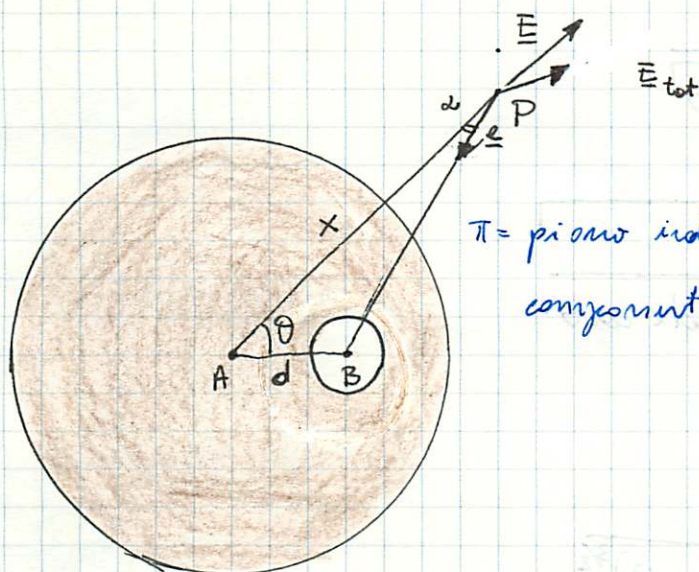 E
E tot
α
P
e
x
π = piano
component
θ
A
d
B